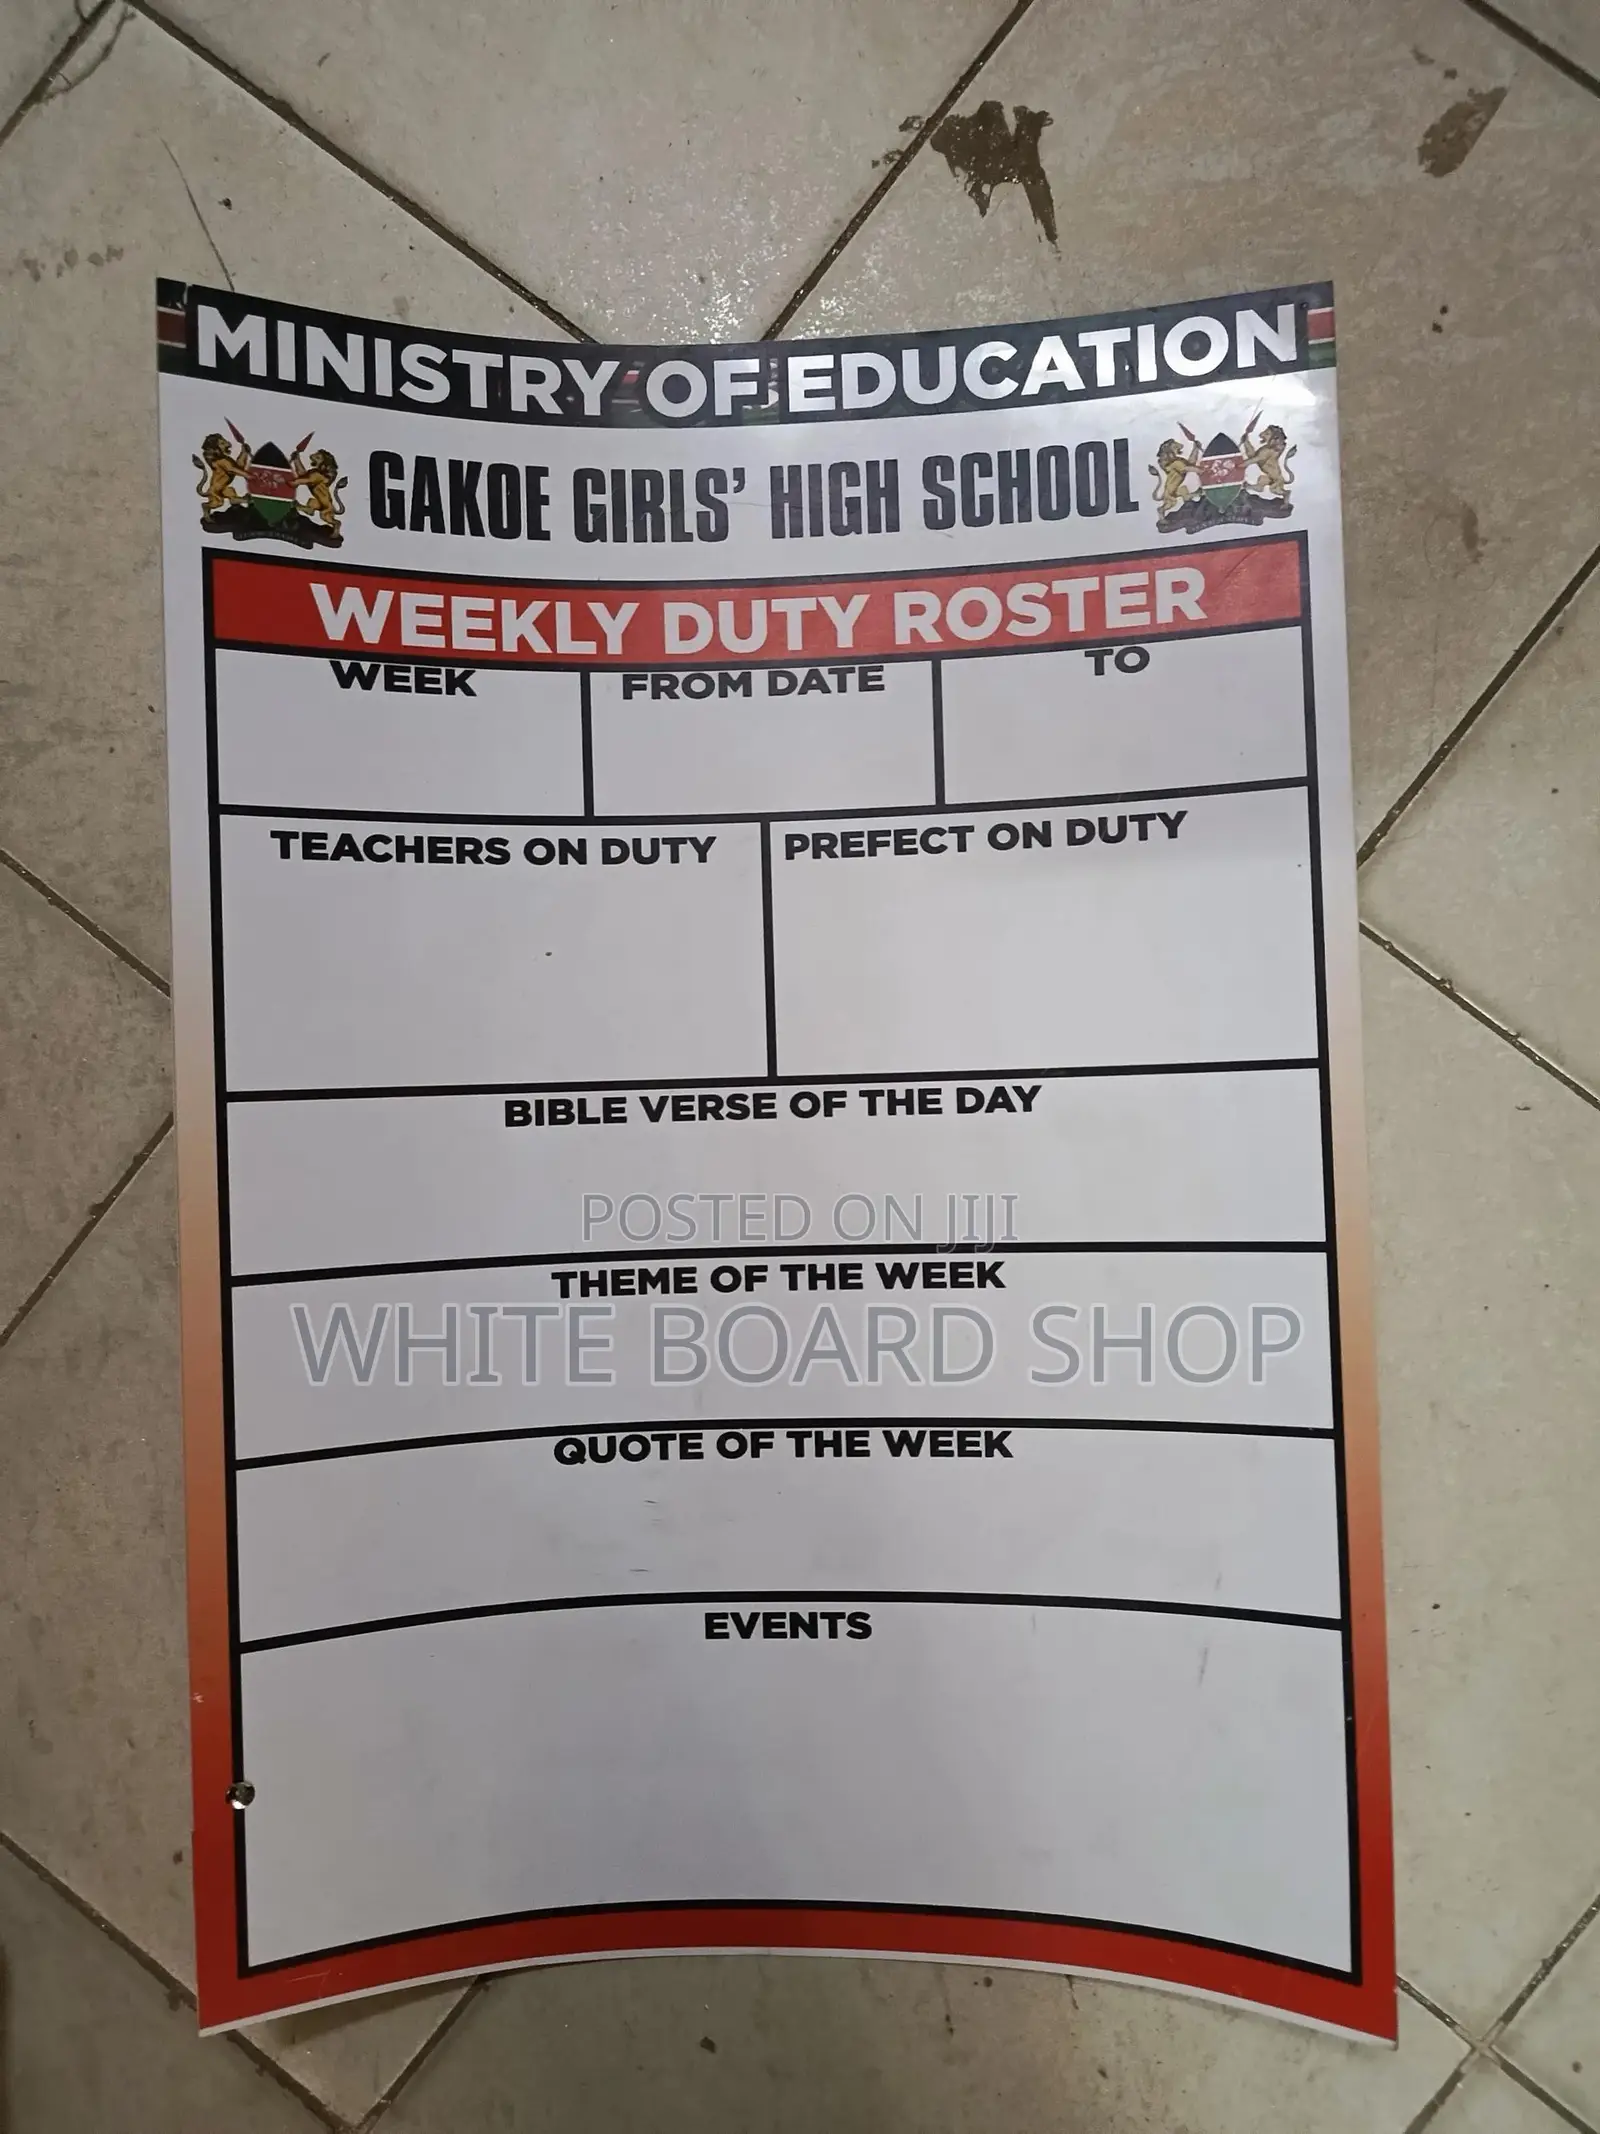 MINISTRY OF EDUCATION
GAKOE GIRLS' HIGH SCHOOL
WEEKLY DUTY ROSTER
WEEK
FROM DATE
TO
TEACHERS ON DUTY
PREFECT ON DUTY
BIBLE VERSE OF THE DAY
POSTED ON JIJI
THEME OF THE WEEK
WHITE BOARD SHOP
QUOTE OF THE WEEK
EVENTS